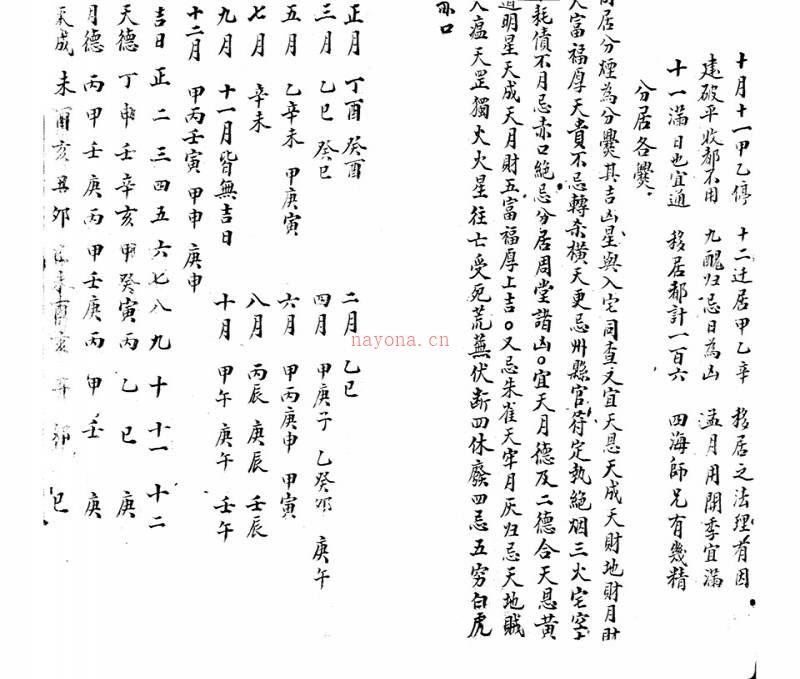 十月十一甲乙停　十二迁居甲乙辛　移居之法理有因
建破平收都不用　九醜归忌日為凶　孟月用開季宜滿
十一滿日也宜通　移居都計一百六　四海師兄有幾精
分居各爨
居分煙為分爨其吉凶星與入宅同查之宜天恩天成天財地財月財
大富福厚天貴不忌轉杀橫天更忌卅縣官符定执絶烟三火宅空
耗債不月忌赤口絶忌分居周堂諸凶。宜天月德及二德合天恩黄
道明星天成天月財五富福厚上吉。又忌朱雀天牢月厌归忌天地賊
瘟天罡獨火火星往亡受死荒蕪伏断四休廢四忌五穷白虎
赤口
正月　丁酉　癸酉　二月　乙巳
三月　乙巳　癸巳　四月　甲庚子　乙癸卯　庚午
五月　乙辛未　甲庚寅　六月　甲丙庚申　甲寅
七月　辛未　八月　丙辰　庚辰　壬辰
九月　十一月皆無吉日　十月　甲午　庚午　壬午
十二月　甲丙壬寅　甲申　庚申
吉日　正　二　三　四　五　六　七　八　九　十　十一　十二
天德　丁　申　壬　辛　亥　甲　癸　寅　丙　乙　巳　庚
月德　丙　甲　壬　庚　丙　甲　壬　庚　丙　甲　壬　庚
天成　未　酉　亥　丑　卯　未　酉　亥　卯　巳
nayona.cn